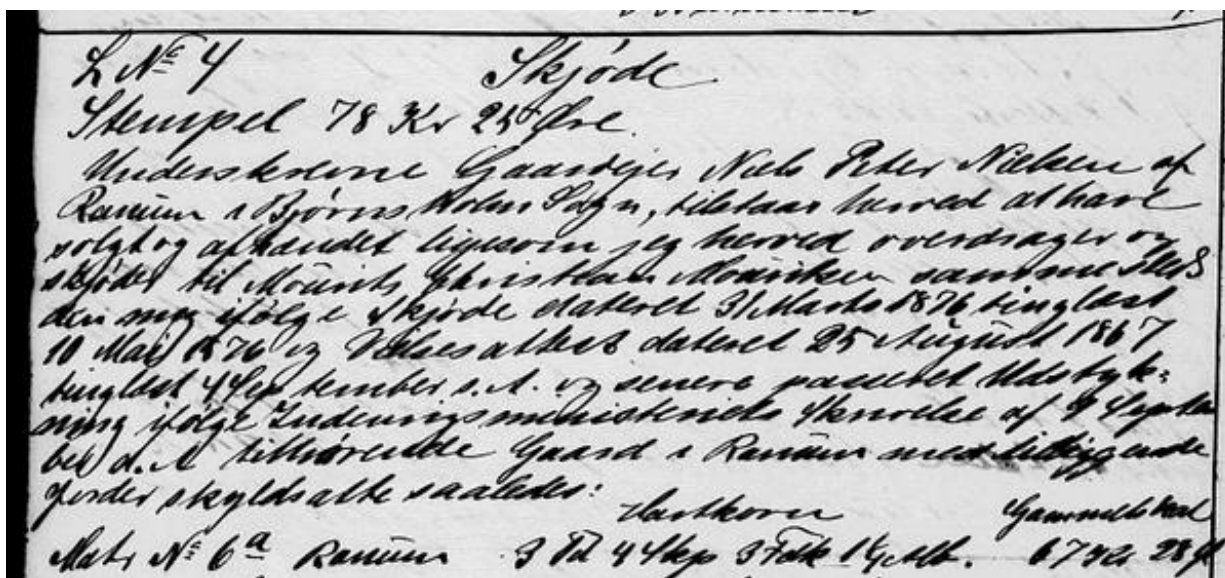 L № 4 Skjøde
Stempel 78 Kr 25 Øre.
Underskrevne Gaardejer Niels Peter Nielsen af
Ranum i Bjørnsholm Sogn, tilstaar herved at have
solgt og afhændet ligesom jeg herved overdrager og
skjøder til Mourits Christian Mouritsen samme Sted
den mig ifølge Skjøde dateret 31 Marts 1876 tinglæst
10 Mai 1876 og Vielsesattest dateret 25 August 1867
tinglæst 4 September s. A. og senere passeret Udstyk-
ning ifølge Indenrigsministeriets Skrivelse af 9 Septem
ber d. A tilhørende Gaard i Ranum med tilliggende
Jorder skyldsatte saaledes:
Hartkorn Gammelskat
Matr № 6a Ranum 3 Td 4 Skp 3 Fdk 1¼ Alb. 67 Kr 28